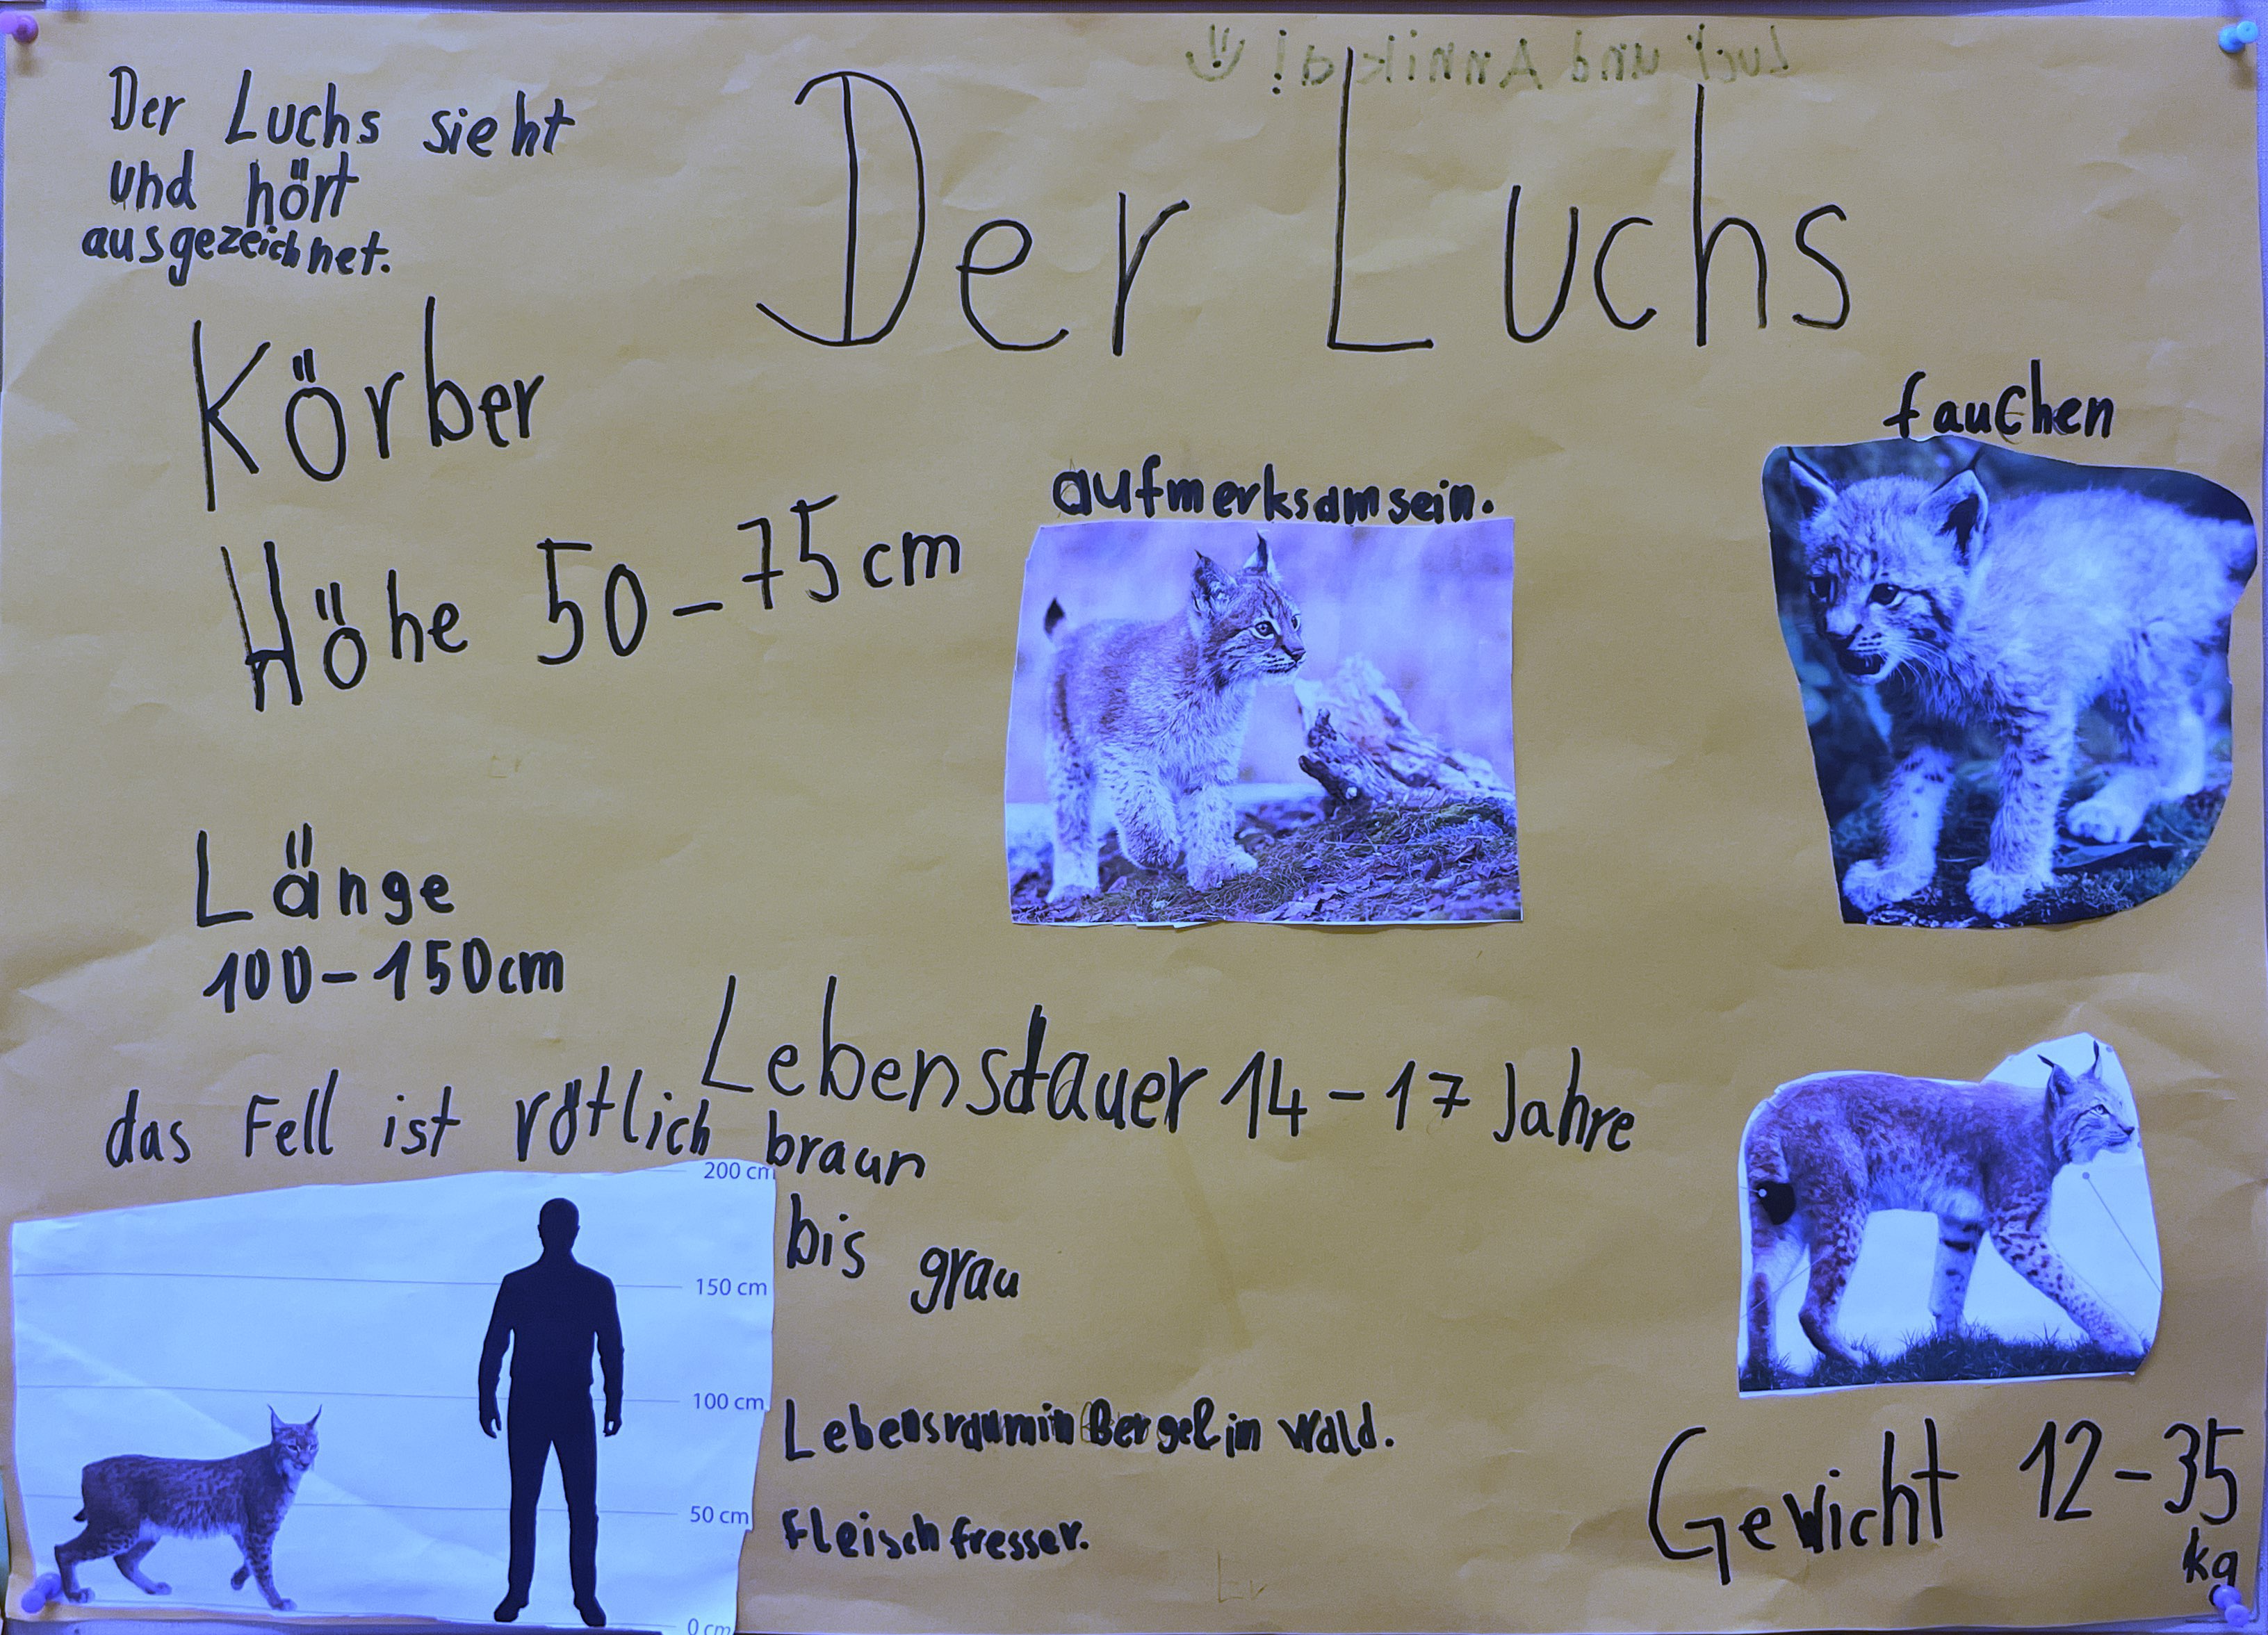 Lucy und Annika! ☺
Der Luchs
Der Luchs sieht
und hört
ausgezeichnet.
Körber
Höhe 50-75 cm
Länge
100-150cm
aufmerksamsein.
fauchen
Lebensdauer 14-17 Jahre
das Fell ist rötlich braun
bis grau
200 cm
150 cm
100 cm
50 cm
0 cm
Lebensraum in Bergel in Wald.
Fleischfresser.
Gewicht 12-35
kg